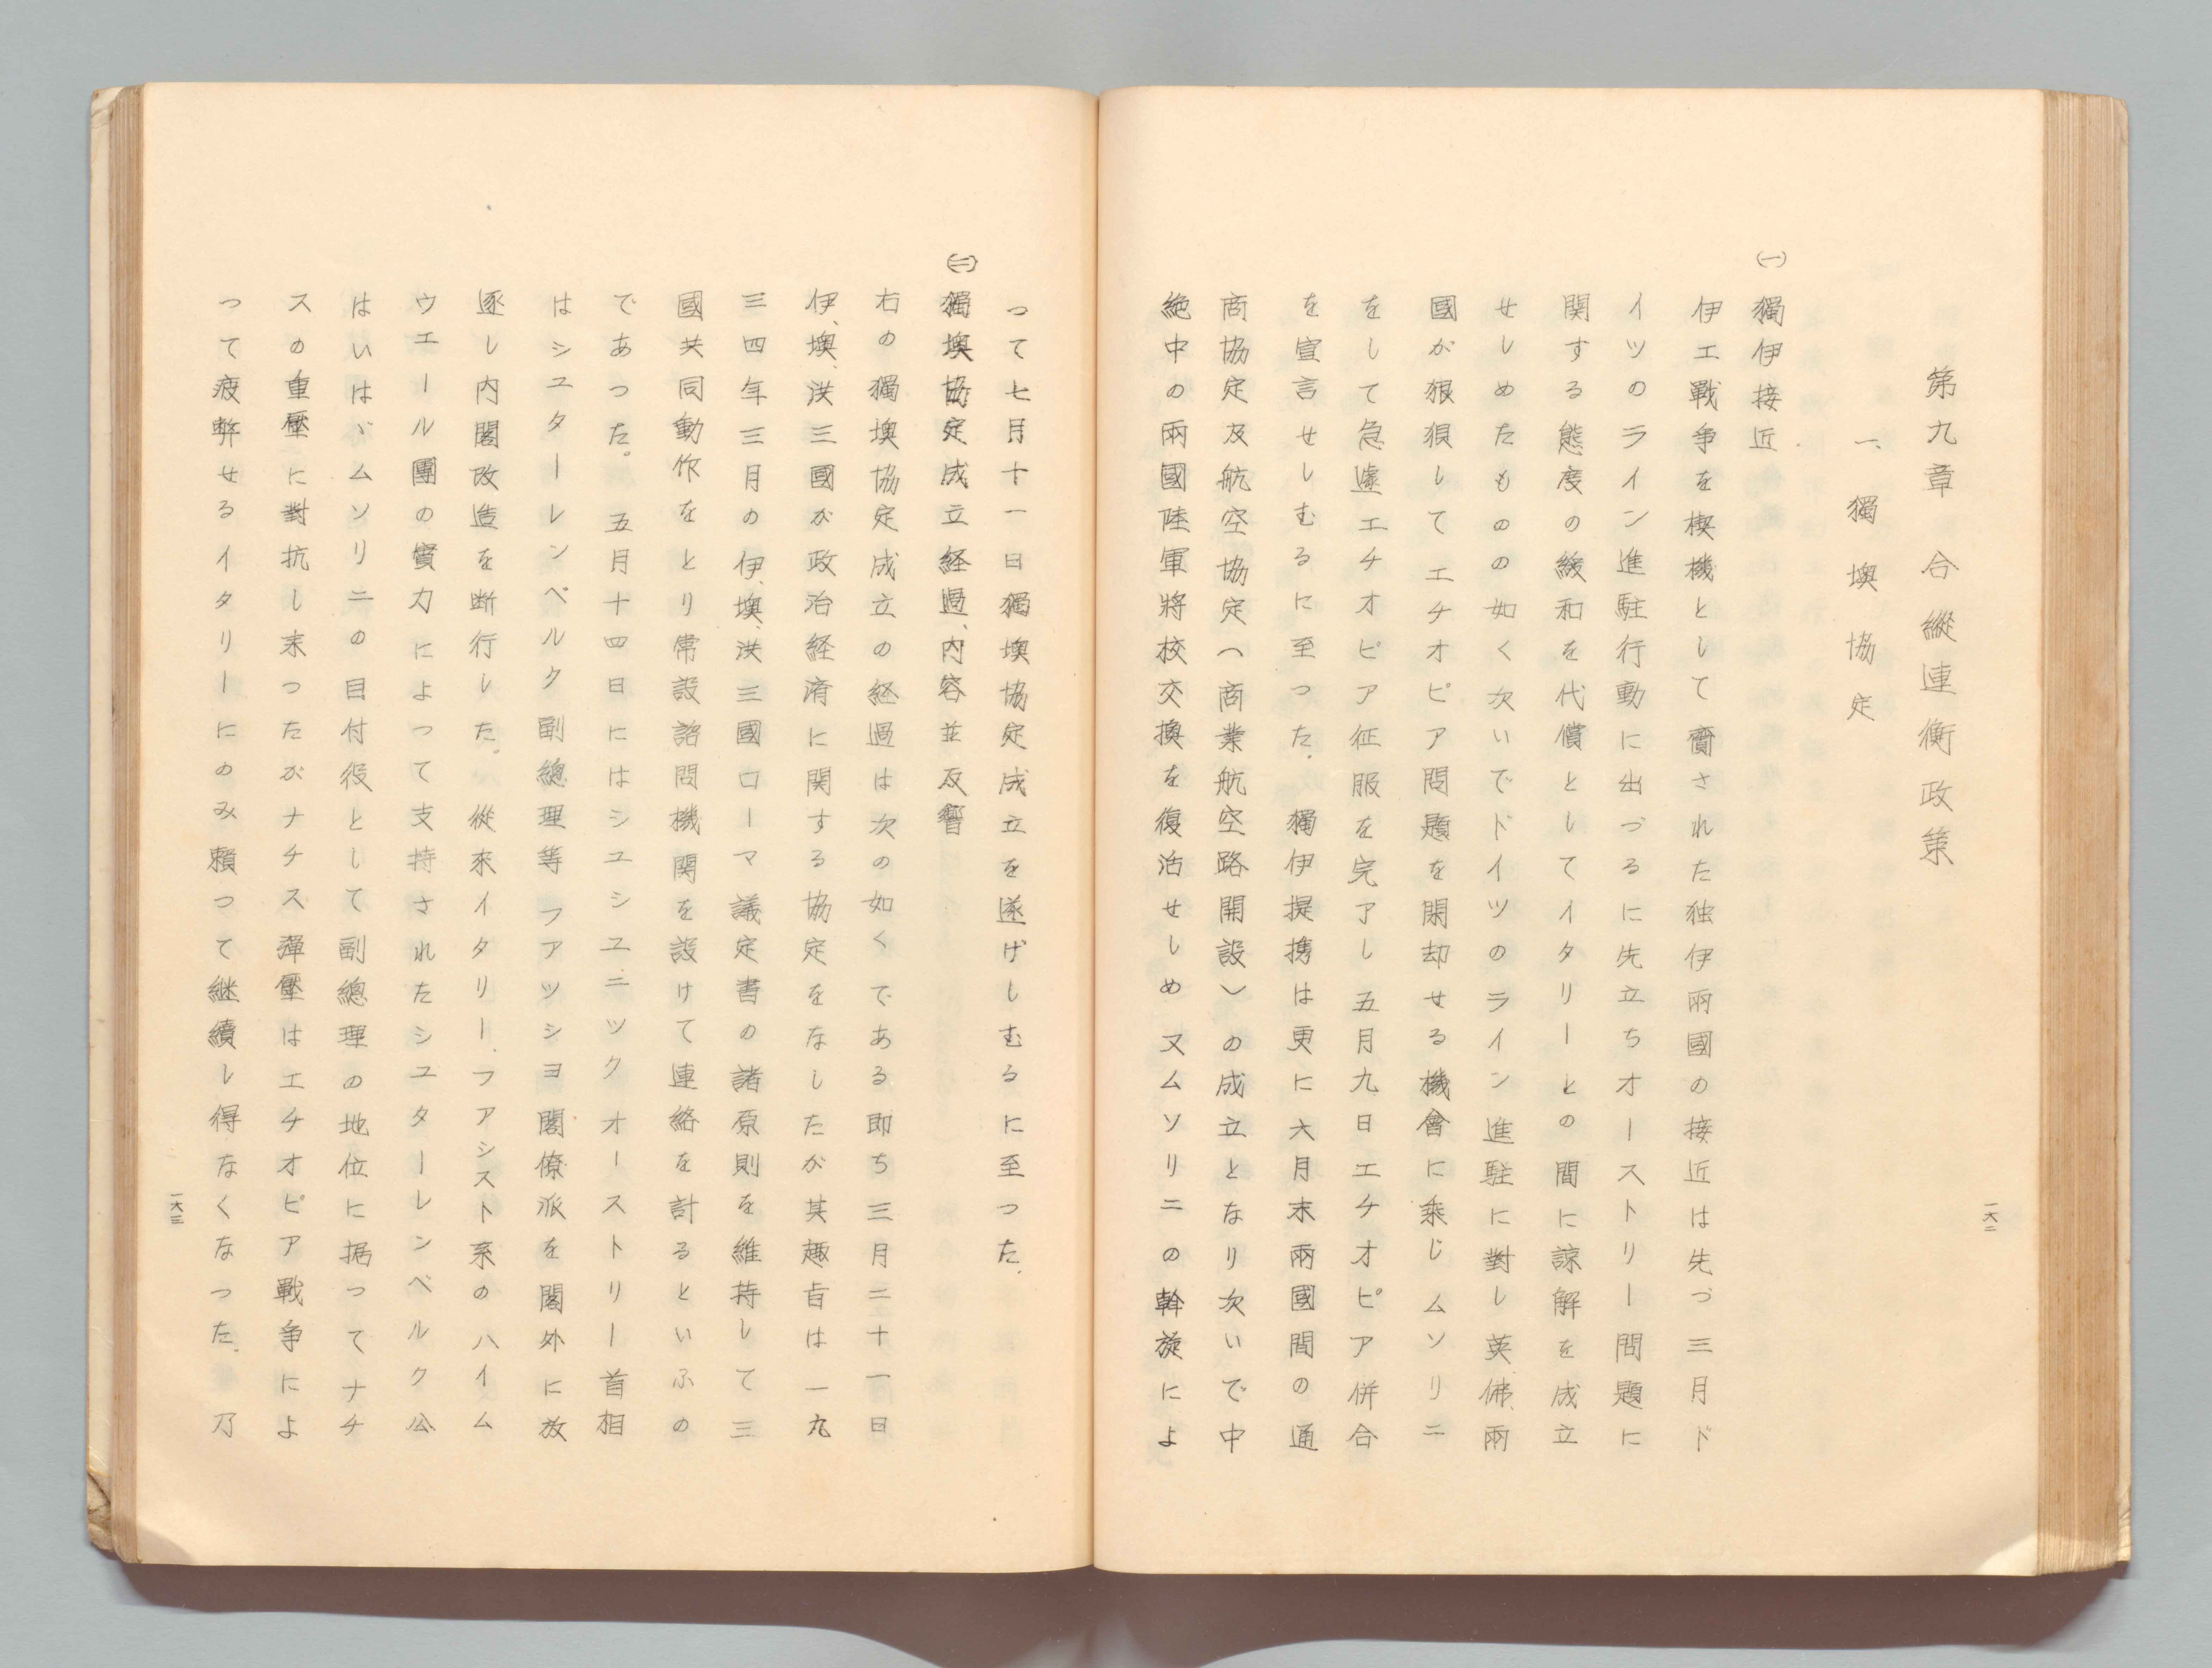 第九章　合縱連衡政策
一、獨墺協定
(一)獨伊接近
伊エ戰争を楔機として齎された独伊兩國の接近は先づ三月ド
イツのライン進駐行動に出づるに先立ちオーストリー問題に
関する態度の緩和を代償としてイタリーとの間に諒解を成立
せしめたものの如く次いでドイツのライン進駐に對し英、佛、兩
國が狼狽してエチオピア問題を閑却せる機會に乘じムソリニ
をして急遽エチオピア征服を完了し五月九日エチオピア併合
を宣言せしむるに至つた。獨伊提携は更に六月末兩國間の通
商協定及航空協定（商業航空路開設）の成立となり次いで中
絶中の兩國陸軍將校交換を復活せしめ又ムソリニの斡旋によ
一六二
つて七月十一日獨墺協定成立を遂げしむるに至つた。
(二)獨墺協定成立経過、内容並反響
右の獨墺協定成立の経過は次の如くである即ち三月二十一日
伊、墺、洪三國が政治経済に関する協定をなしたが其趣旨は一九
三四年三月の伊、墺、洪三國ローマ議定書の諸原則を維持して三
國共同動作をとり常設諮問機関を設けて連絡を計るといふの
であつた。五月十四日にはシユシユニツクオーストリー首相
はシユターレンベルク副總理等フアツシヨ閣僚派を閣外に放
逐し内閣改造を断行した。從來イタリー、フアシスト系のハイム
ウエール團の實力によつて支持されたシユターレンベルク公
はいはゞムソリニの目付役として副總理の地位に据つてナチ
スの重壓に對抗し来つたがナチス彈壓はエチオピア戰争によ
つて疲弊せるイタリーにのみ賴つて継續し得なくなつた。乃
一六三